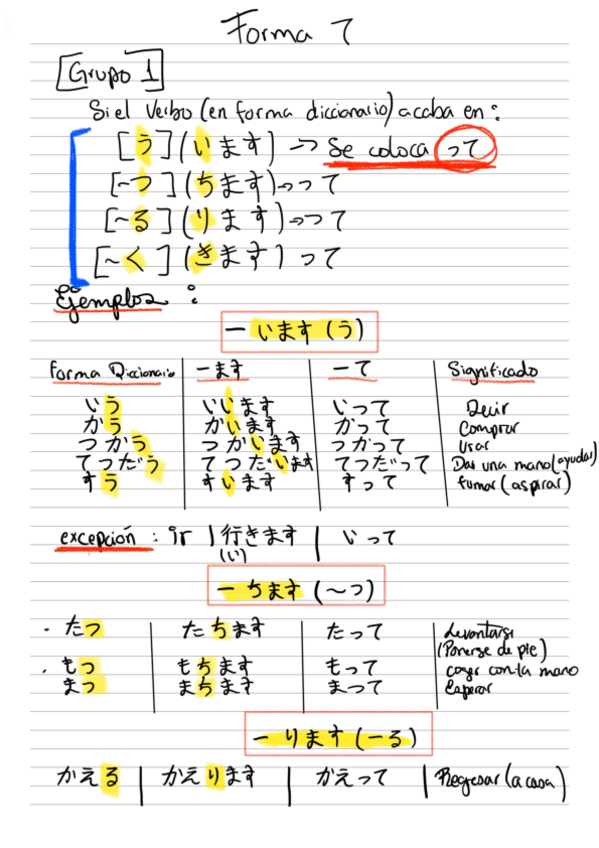 Forma て
[Grupo 1]
Si el Verbo (en forma diccionario) acaba en:
[う] (います) → Se coloca って
[~つ] (ちます) → って
[~る] (ります) → って
[~く] (きます) って
Ejemplos:
― います (う)
forma Diccionario | ―ます | ―て | Significado
いう | いいます | いって | Decir
かう | かいます | かって | Comprar
つかう | つかいます | つかって | Usar
てつだう | てつだいます | てつだって | Dar una mano (ayudar)
すう | すいます | すって | fumar (aspirar)
excepción: ir | 行きます | いって
(い)
― ちます (~つ)
· たつ | たちます | たって | Levantarse
(Ponerse de pie)
· もつ | もちます | もって | coger con la mano
まつ | まちます | まって | Esperar
― ります (―る)
かえる | かえります | かえって | Regresar (a casa)